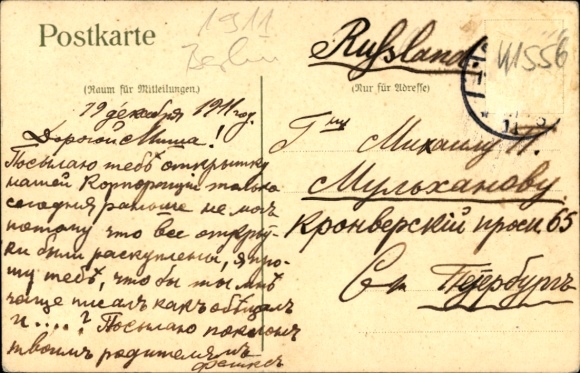 Postkarte
1911
Berlin
Russland
41556
(Raum für Mitteilungen.)
(Nur für Adresse)
19 декабря 1911 год.
Дорогой Миша!
Посылаю тебѣ открытку
нашей Корпорціи только
сегодня раньше не могъ
потому что все открыт-
ки были раскуплены, я про-
шу тебѣ, что бы ты мнѣ
чаще писалъ какъ обѣщалъ
и....? Посылаю поклонъ
твоимъ родителямъ
Михаилу
Мульханову
Кронверскій просп 65
Ст Петербургъ